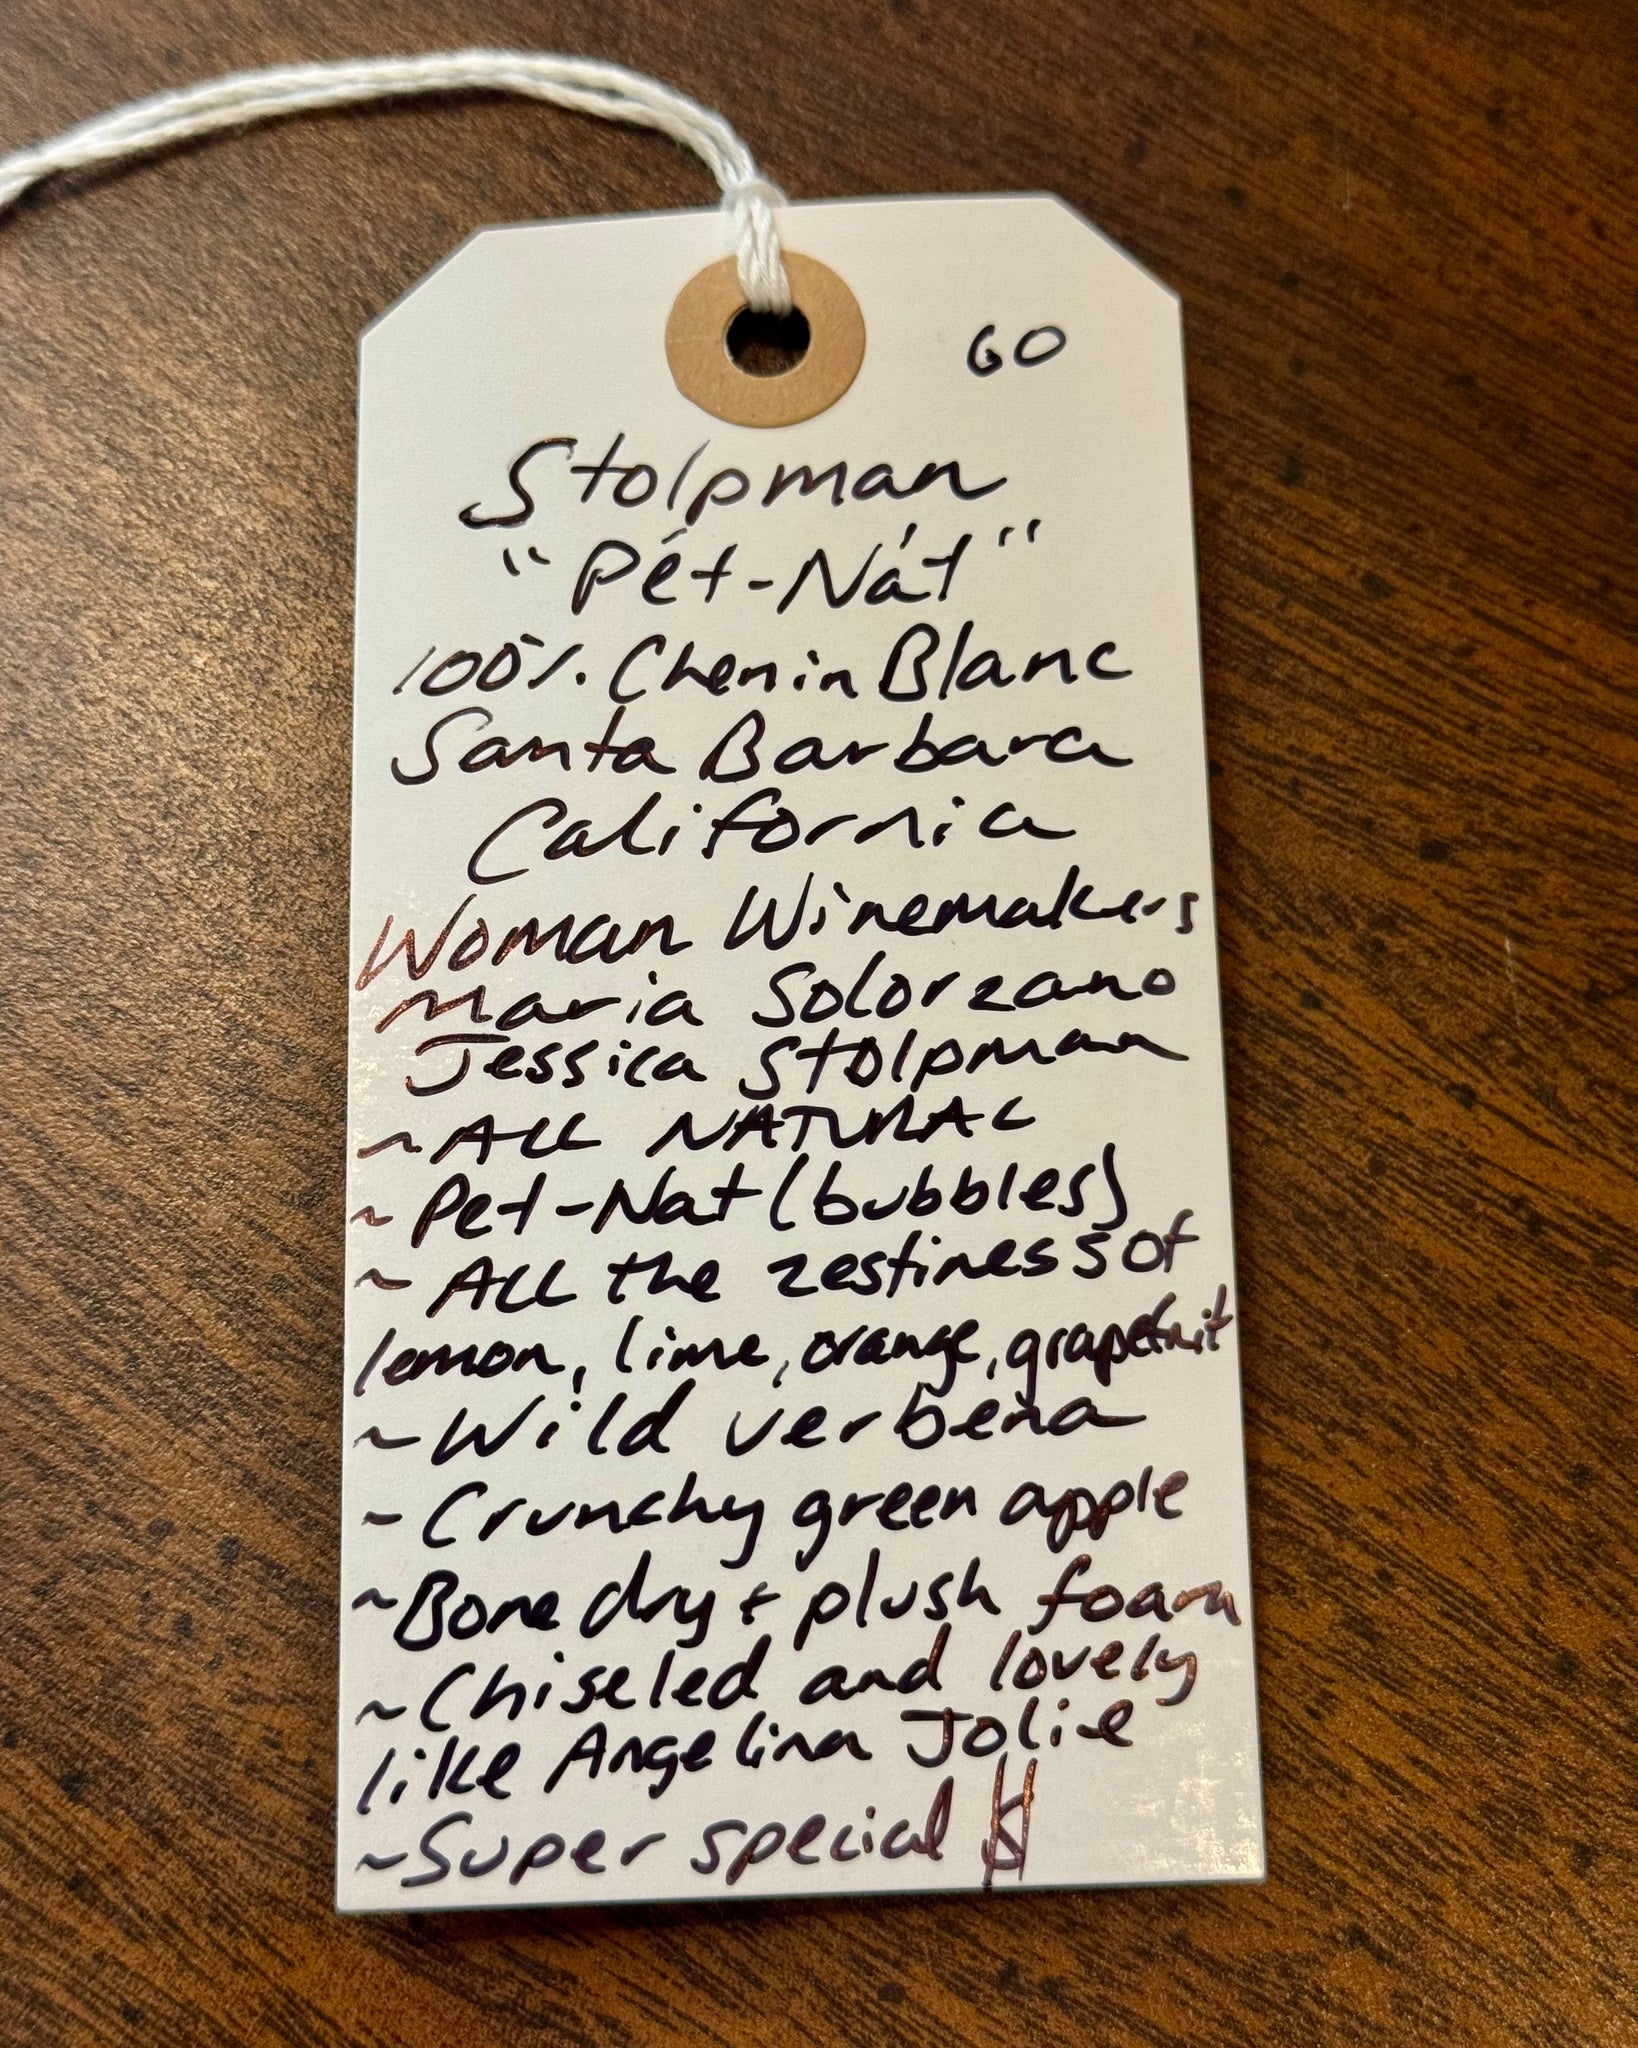 60
Stolpman
"Pét-Nát"
100%. Chenin Blanc
Santa Barbara
California
Woman Winemakers
Maria Solorzano
Jessica Stolpman
~ALL NATURAL
~Pet-Nat (bubbles)
~ALL the zestiness of
lemon, lime, orange, grapefruit
~Wild verbena
~Crunchy green apple
~Bone dry + plush foam
~Chiseled and lovely
like Angelina Jolie
~Super special $